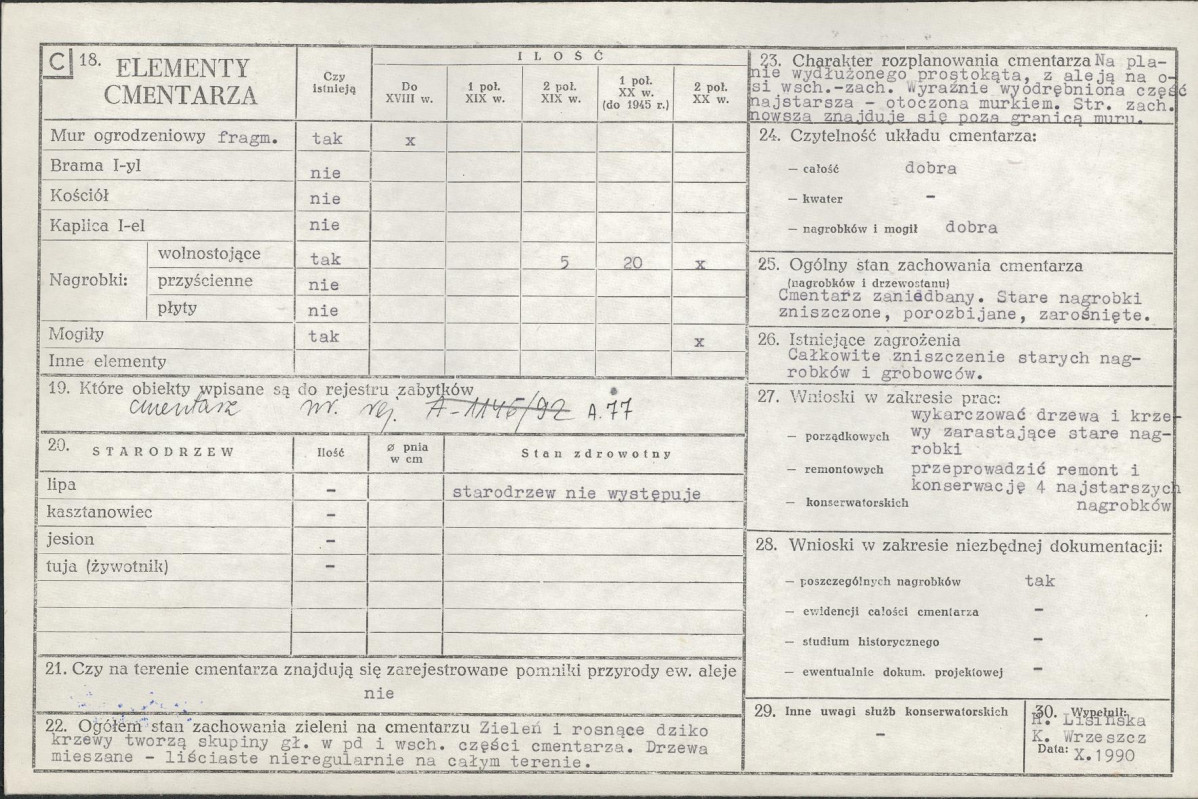 C 18. ELEMENTY CMENTARZA
Czy istnieją
ILOŚĆ
Do XVIII w.
1 poł. XIX w.
2 poł. XIX w.
1 poł. XX w. (do 1945 r.)
2 poł. XX w.
Mur ogrodzeniowy fragm. tak x
Brama I-yl nie
Kościół nie
Kaplica I-el nie
Nagrobki:
wolnostojące tak 5 20 x
przyścienne nie
płyty nie
Mogiły tak x
Inne elementy
19. Które obiekty wpisane są do rejestru zabytków
cmentarz nr. rej. A-1145/92 A.77
20. STARODRZEW Ilość ø pnia w cm Stan zdrowotny
lipa - starodrzew nie występuje
kasztanowiec -
jesion -
tuja (żywotnik) -
21. Czy na terenie cmentarza znajdują się zarejestrowane pomniki przyrody ew. aleje
nie
22. Ogółem stan zachowania zieleni na cmentarzu Zieleń i rosnące dziko
krzewy tworzą skupiny gł. w pd i wsch. części cmentarza. Drzewa
mieszane - liściaste nieregularnie na całym terenie.
23. Charakter rozplanowania cmentarza Na pla-
nie wydłużonego prostokąta, z aleją na o-
si wsch.-zach. Wyraźnie wyodrębniona część
najstarsza - otoczona murkiem. Str. zach.
nowsza znajduje się poza granicą muru.
24. Czytelność układu cmentarza:
— całość dobra
— kwater -
— nagrobków i mogił dobra
25. Ogólny stan zachowania cmentarza
(nagrobków i drzewostanu)
Cmentarz zaniedbany. Stare nagrobki
zniszczone, porozbijane, zarośnięte.
26. Istniejące zagrożenia
Całkowite zniszczenie starych nag-
robków i grobowców.
27. Wnioski w zakresie prac:
— porządkowych wykarczować drzewa i krze-
wy zarastające stare nag-
robki
— remontowych przeprowadzić remont i
— konserwatorskich konserwację 4 najstarszych
nagrobków
28. Wnioski w zakresie niezbędnej dokumentacji:
— poszczególnych nagrobków tak
— ewidencji całości cmentarza -
— studium historycznego -
— ewentualnie dokum. projektowej -
29. Inne uwagi służb konserwatorskich
-
30. Wypełnił:
M. Lisińska
K. Wrzeszcz
Data: X.1990